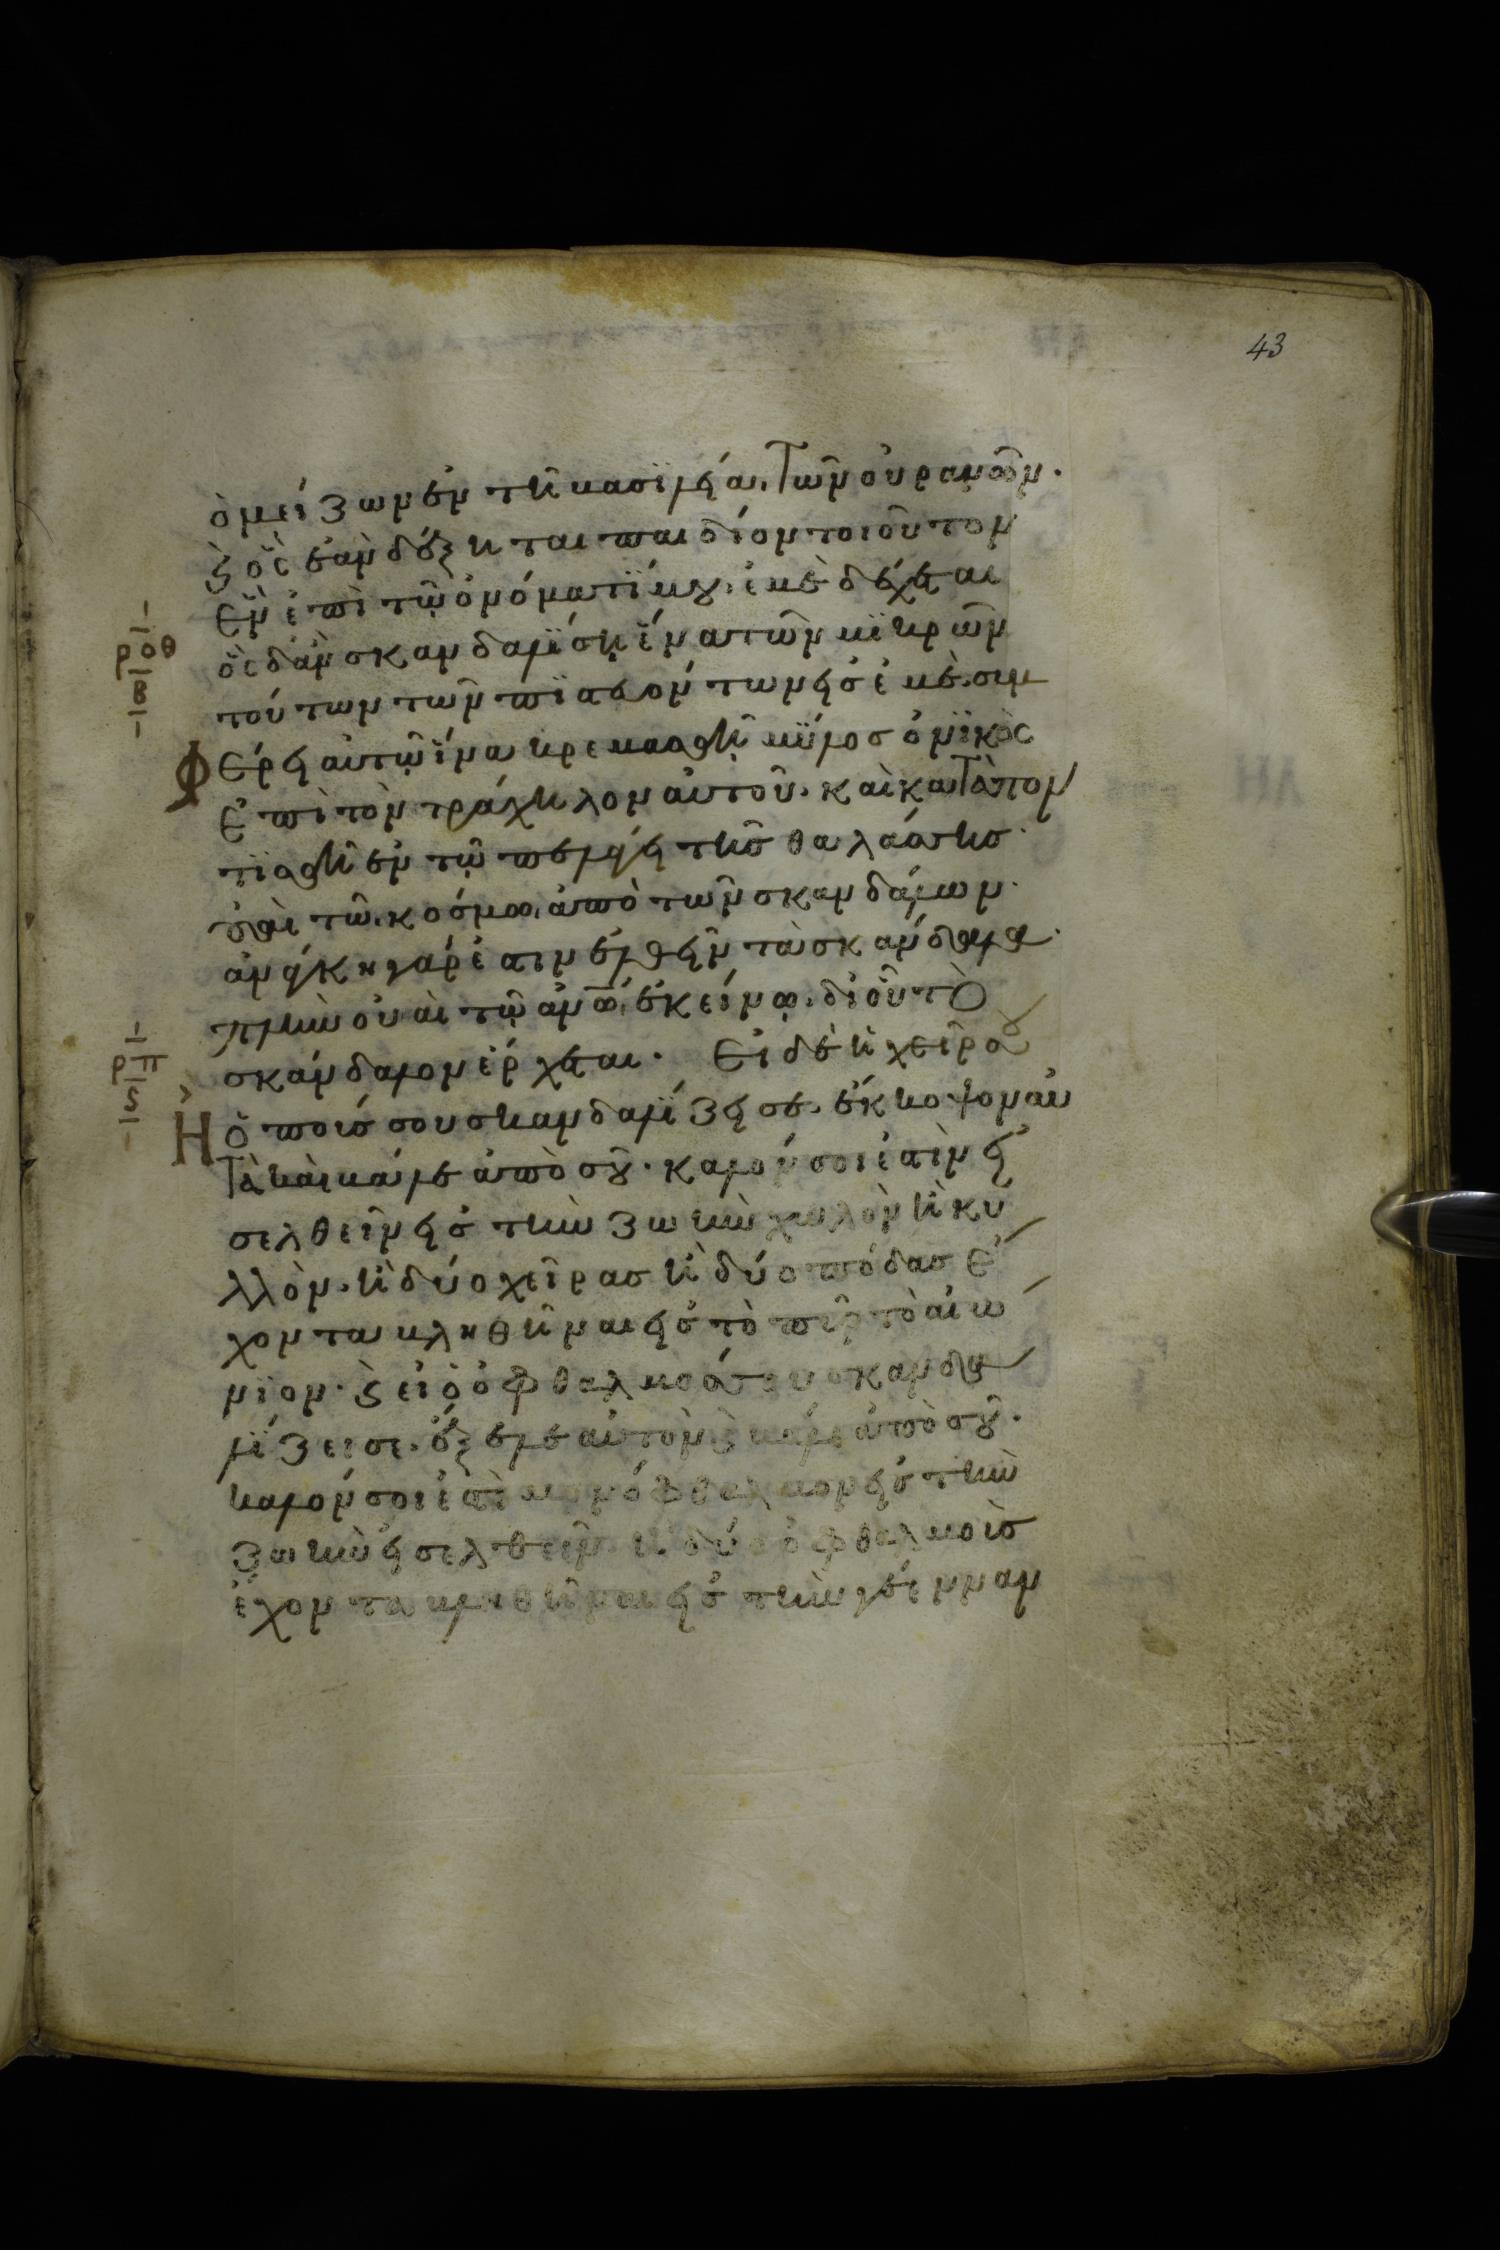 43
ὁ μείζων ἐν τῆ βασιλεία τῶν οὐρανῶν·
ϗ ὃς ἐὰν δέξηται παιδίον τοιοῦτον
ἓν ἐπὶ τῷ ὀνόματί μου, ἐμὲ δέχεται
ρ̅ο̅θ̅
β̅
ὃς δἂν σκανδαλίση ἕνα τῶν μικρῶν
τούτων τῶν πιστευόντων εἰς ἐμὲ. συμ
φέρει αὐτῷ ἵνα κρεμασθῆ μύλος ὀνικὸς
ἐπὶ τὸν τράχηλον αὐτοῦ. καὶ καταπον
τισθῆ ἐν τῷ πελάγει τῆς θαλάσσης·
οὐαὶ τῶ κόσμω, ἀπὸ τῶν σκανδάλων·
ἀνάγκη γάρ ἐστιν ἐλθεῖν τὰ σκάνδαλα·
πλὴν οὐαὶ τῷ ἀν̅ω̅ ἐκείνῳ, δι οὗ τὸ
σκάνδαλον ἔρχεται· εἰ δὲ ἡ χείρ σου
ρ̅π̅
ϛ̅
ἢ ὁ ποῦς σου σκανδαλίζει σε, ἔκκοψον αὐ
τὰ καὶ βάλε ἀπὸ σοῦ· καλόν σοι ἐστὶν εἰ
σελθεῖν εἰς τὴν ζωὴν χωλὸν ἢ κυ
λλὸν, ἢ δύο χεῖρας ἢ δύο πόδας ἔ
χοντα βληθῆναι εἰς τὸ πῦρ τὸ αἰώ
νιον· ϗ εἰ ὁ ὀφθαλμός σου σκανδα
λίζει σε, ἔξελε αὐτὸν ϗ βάλε ἀπὸ σοῦ·
καλόν σοι ἐστὶ μονόφθαλμον εἰς τὴν
ζωὴν εἰσελθεῖν ἢ δύο ὀφθαλμοὺς
ἔχοντα βληθῆναι εἰς τὴν γέενναν